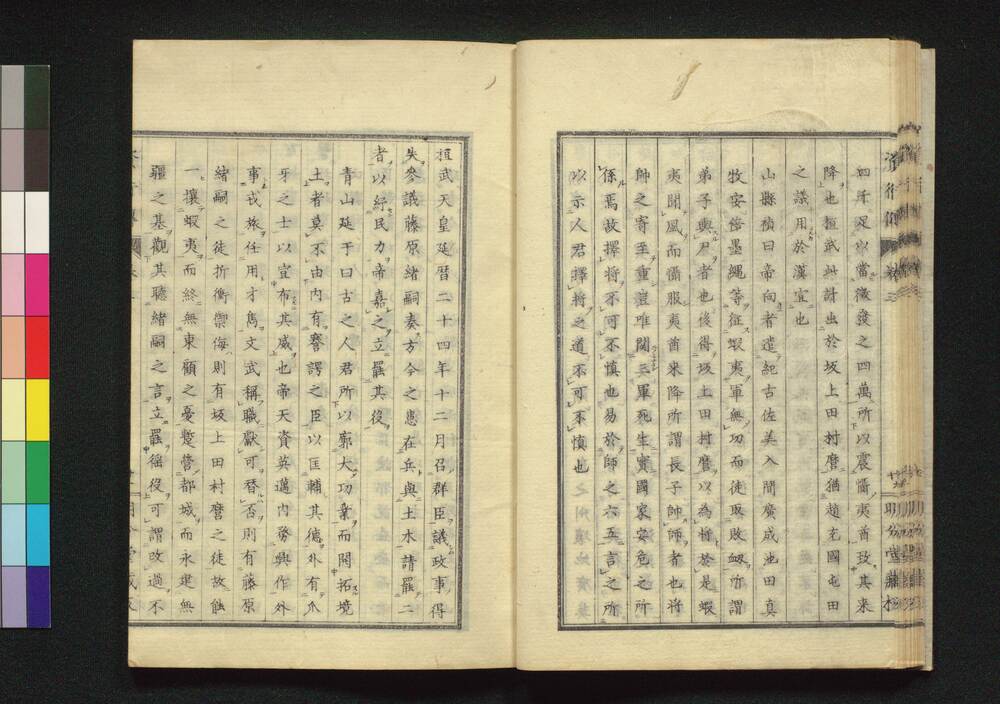 如汗足以當徵發之四萬所以震懾夷酋致其來
降也桓武糾計出於坂上田村麿猶趙充國屯田
之議用於漢宣也
山縣禎曰帝向者遣紀古佐美入間廣成池田真
牧安倍墨繩等征蝦夷軍無功而徒取敗衂所謂
弟子輿尸者也後得坂上田村麿以為將於是蝦
夷聞風而懾服夷酋來降所謂長子帥師者也將
帥之寄至重豈唯關三軍死生實國家安危之所
係焉故擇將不可不慎也易於師之六五言之所
以示人君擇將之道不可不慎也
桓武天皇延暦二十四年十二月召群臣議政事得
失參議藤原緒嗣奏方今之患在兵與土木請罷二
者以紓民力帝嘉之立罷其役
青山延于曰古之人君所以廓大功業而開拓境
土者莫不由内有謇諤之臣以匡輔其德外有爪
牙之士以宣布其威也帝天資英邁内務興作外
事戎旅任用才雋文武稱職獻可替否則有藤原
緒嗣之徒折衝禦侮則有坂上田村麿之徒故能
一攘蝦夷而終無東顧之憂蹔營都城而永建無
疆之基觀其聽緒嗣之言立罷徭役可謂改過不